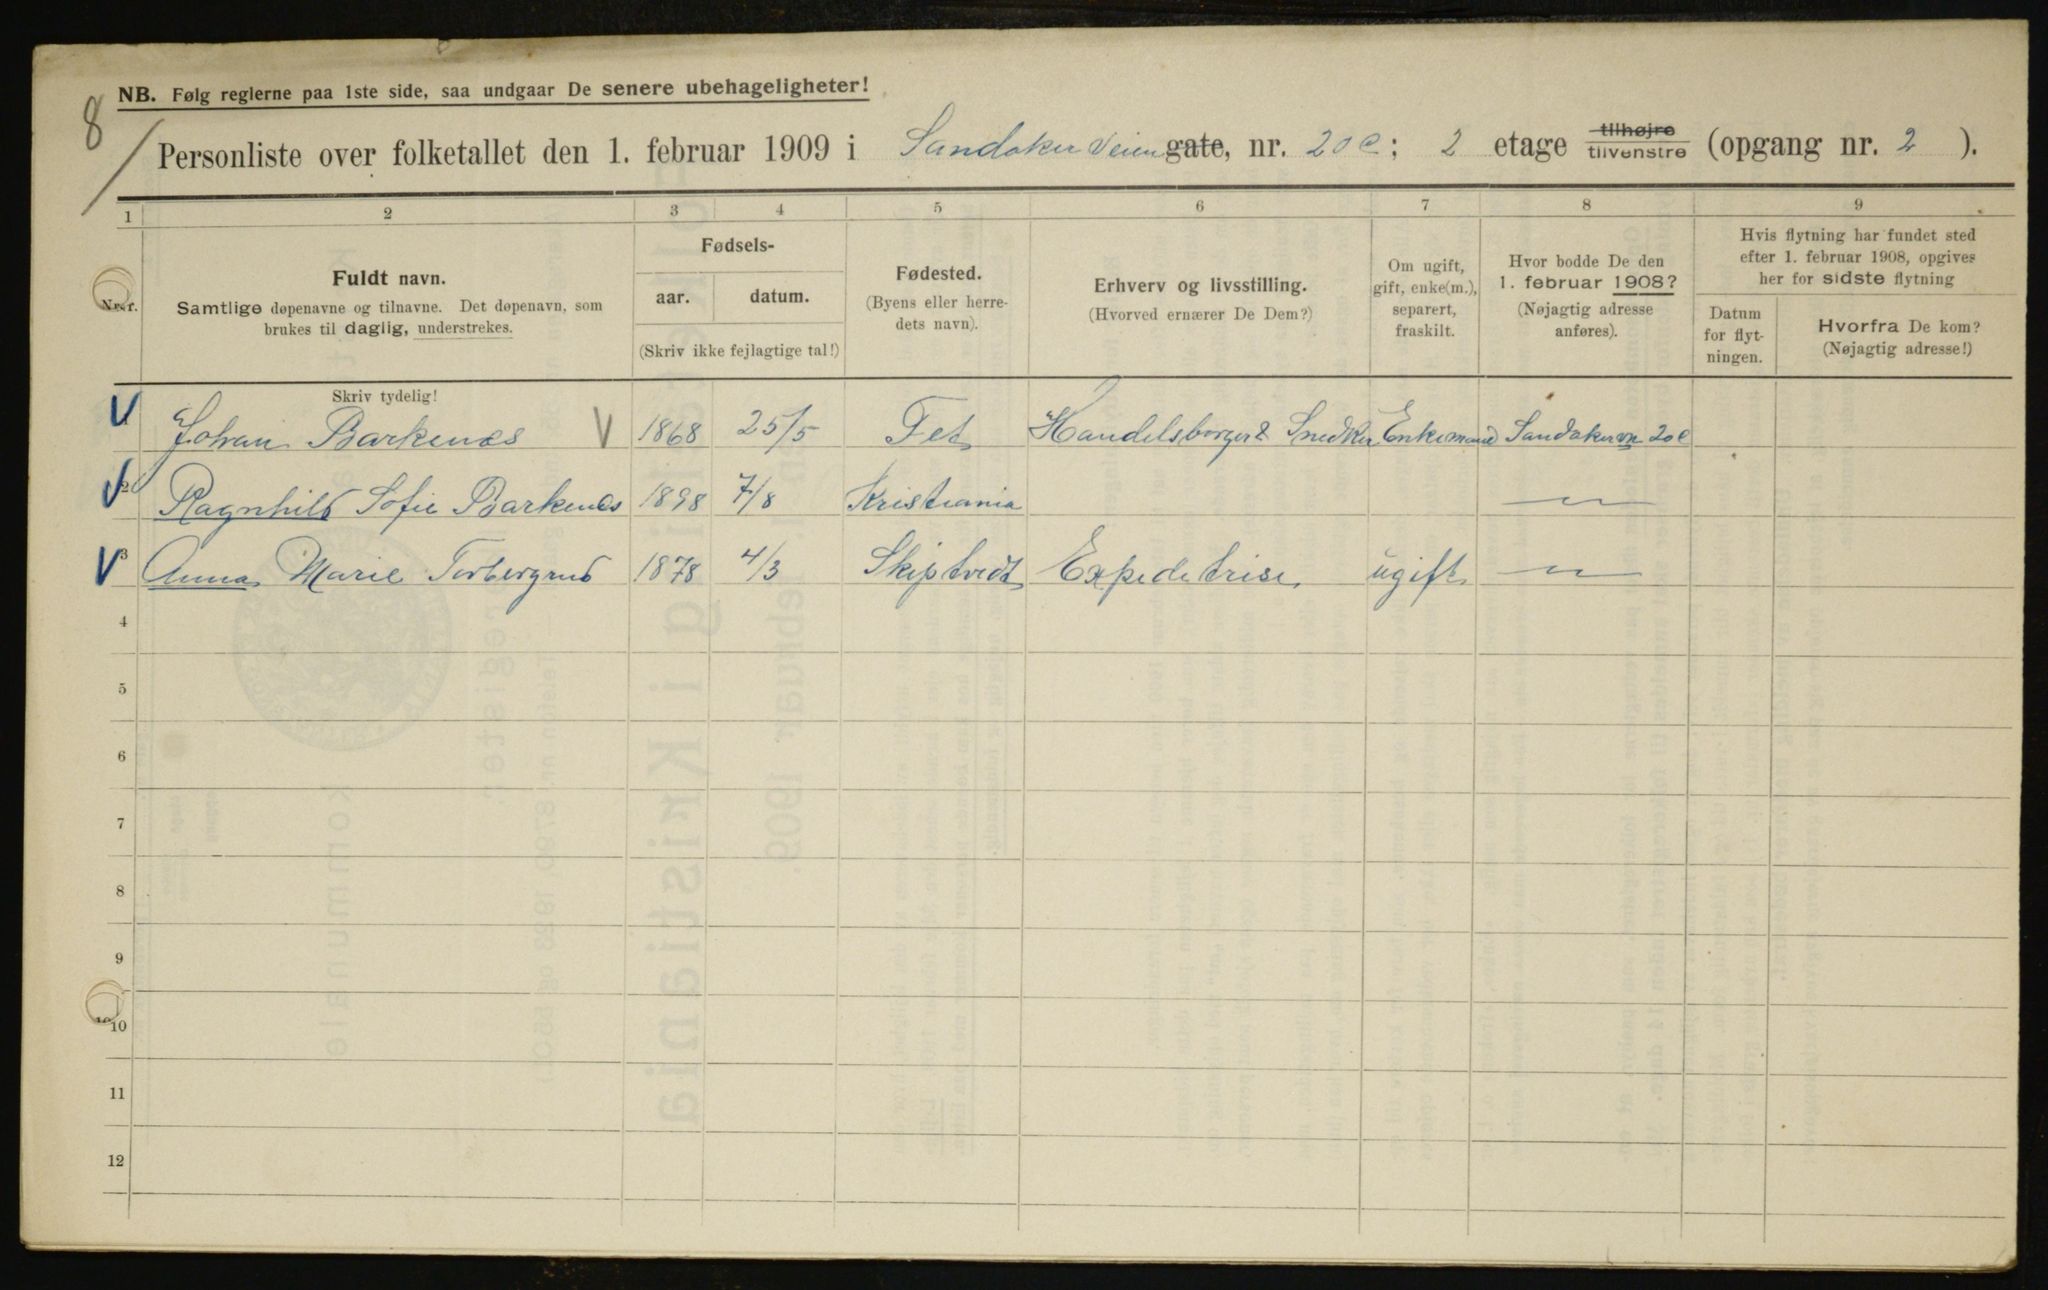 8
NB. Følg reglerne paa 1ste side, saa undgaar De senere ubehageligheter!
Personliste over folketallet den 1. februar 1909 i Sandaker Veien gate, nr. 20 C; 2 etage tilhøjre tilvenstre (opgang nr. 2 ).
1 2 3 4 5 6 7 8 9
Nr. Fuldt navn. Samtlige døpenavne og tilnavne. Det døpenavn, som brukes til daglig, understrekes.
Fødsels- aar. datum. (Skriv ikke fejlagtige tal!)
Fødested. (Byens eller herredets navn).
Erhverv og livsstilling. (Hvorved ernærer De Dem?)
Om ugift, gift, enke(m.), separert, fraskilt.
Hvor bodde De den 1. februar 1908? (Nøjagtig adresse anføres).
Hvis flytning har fundet sted efter 1. februar 1908, opgives her for sidste flytning
Datum for flytningen.
Hvorfra De kom? (Nøjagtig adresse!)
Skriv tydelig!
1 Johan Barkenæs V 1868 25/5 Fet Handelsborger & Snedker Enkemand Sandakervn 20 C
2 Ragnhild Sofie Barkenæs 1898 7/8 Kristiania —"—
3 Anna Marie Torbergrud 1878 4/3 Skiptvedt Expeditrise ugift —"—
4
5
6
7
8
9
10
11
12